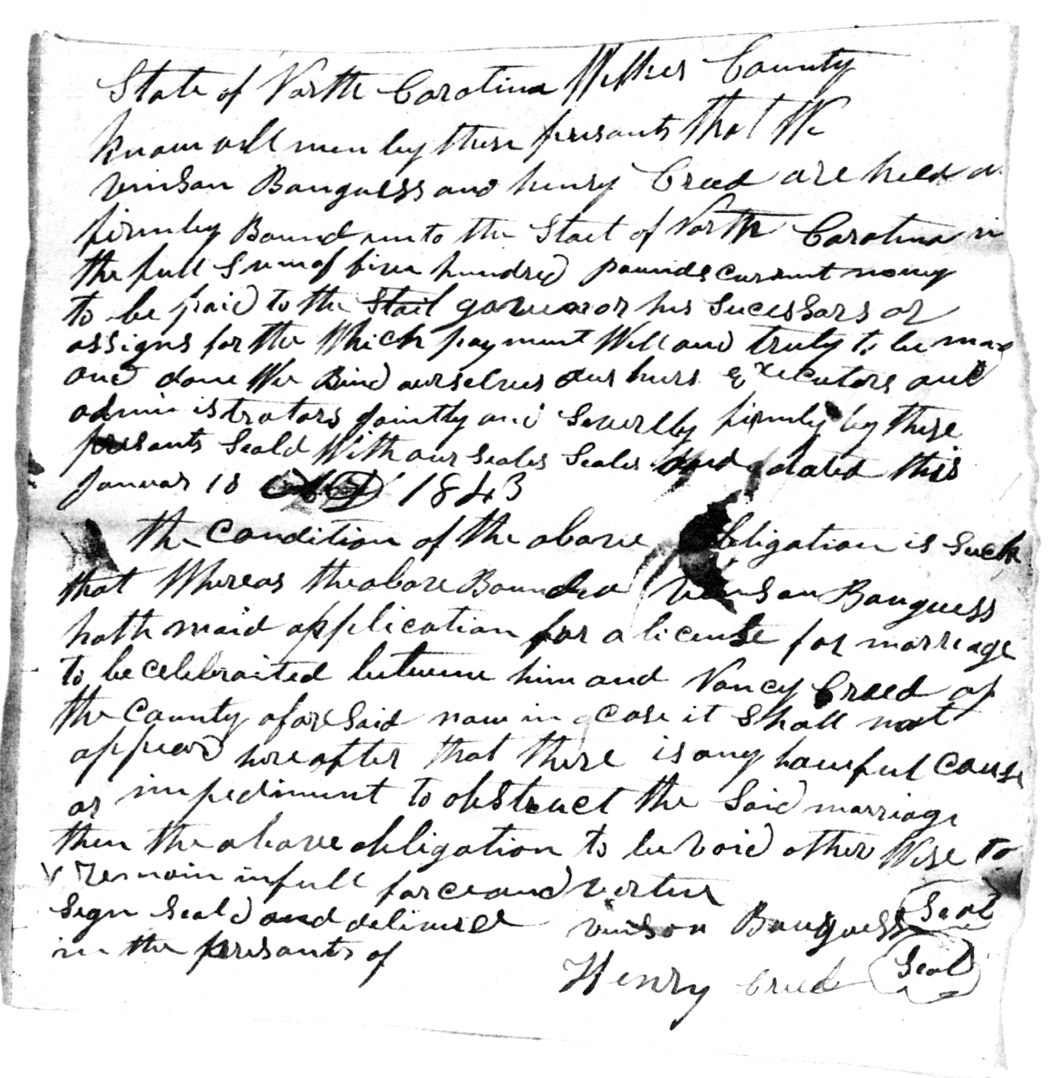 State of North Carolina Wilkes County
know all men by these presants that We
vinson Bauguess and henry Creed are held a
firmley Bound unto the Staet of North Carolina in
the full Sum of five hundred pounds current money
to be paid to the Stait governor his Sucessors or
assigns for the Which payment Well and truly to be mad
and done We Bind ourselves our heirs executors and
admin istrators Jointly and Severlly firmly by these
presants Seald With our Seales Seales and dated this
Januar 18 1843
the Condition of the above obligation is Such
that Whereas the above Bounded Vinson Bauguess
hath maid application for a license for marriage
to be celebraited between him and Nancy Creed of
the County afore Said now in case it Shall not
appear hereafter that there is any lawful cause
or impediment to obstruct the Said marriage
then the above obligation to be void other Wise to
remain in full force and vertue
Sign Seald and delivered vinson Bauguess Seal
in the presants of Henry Creed Seal